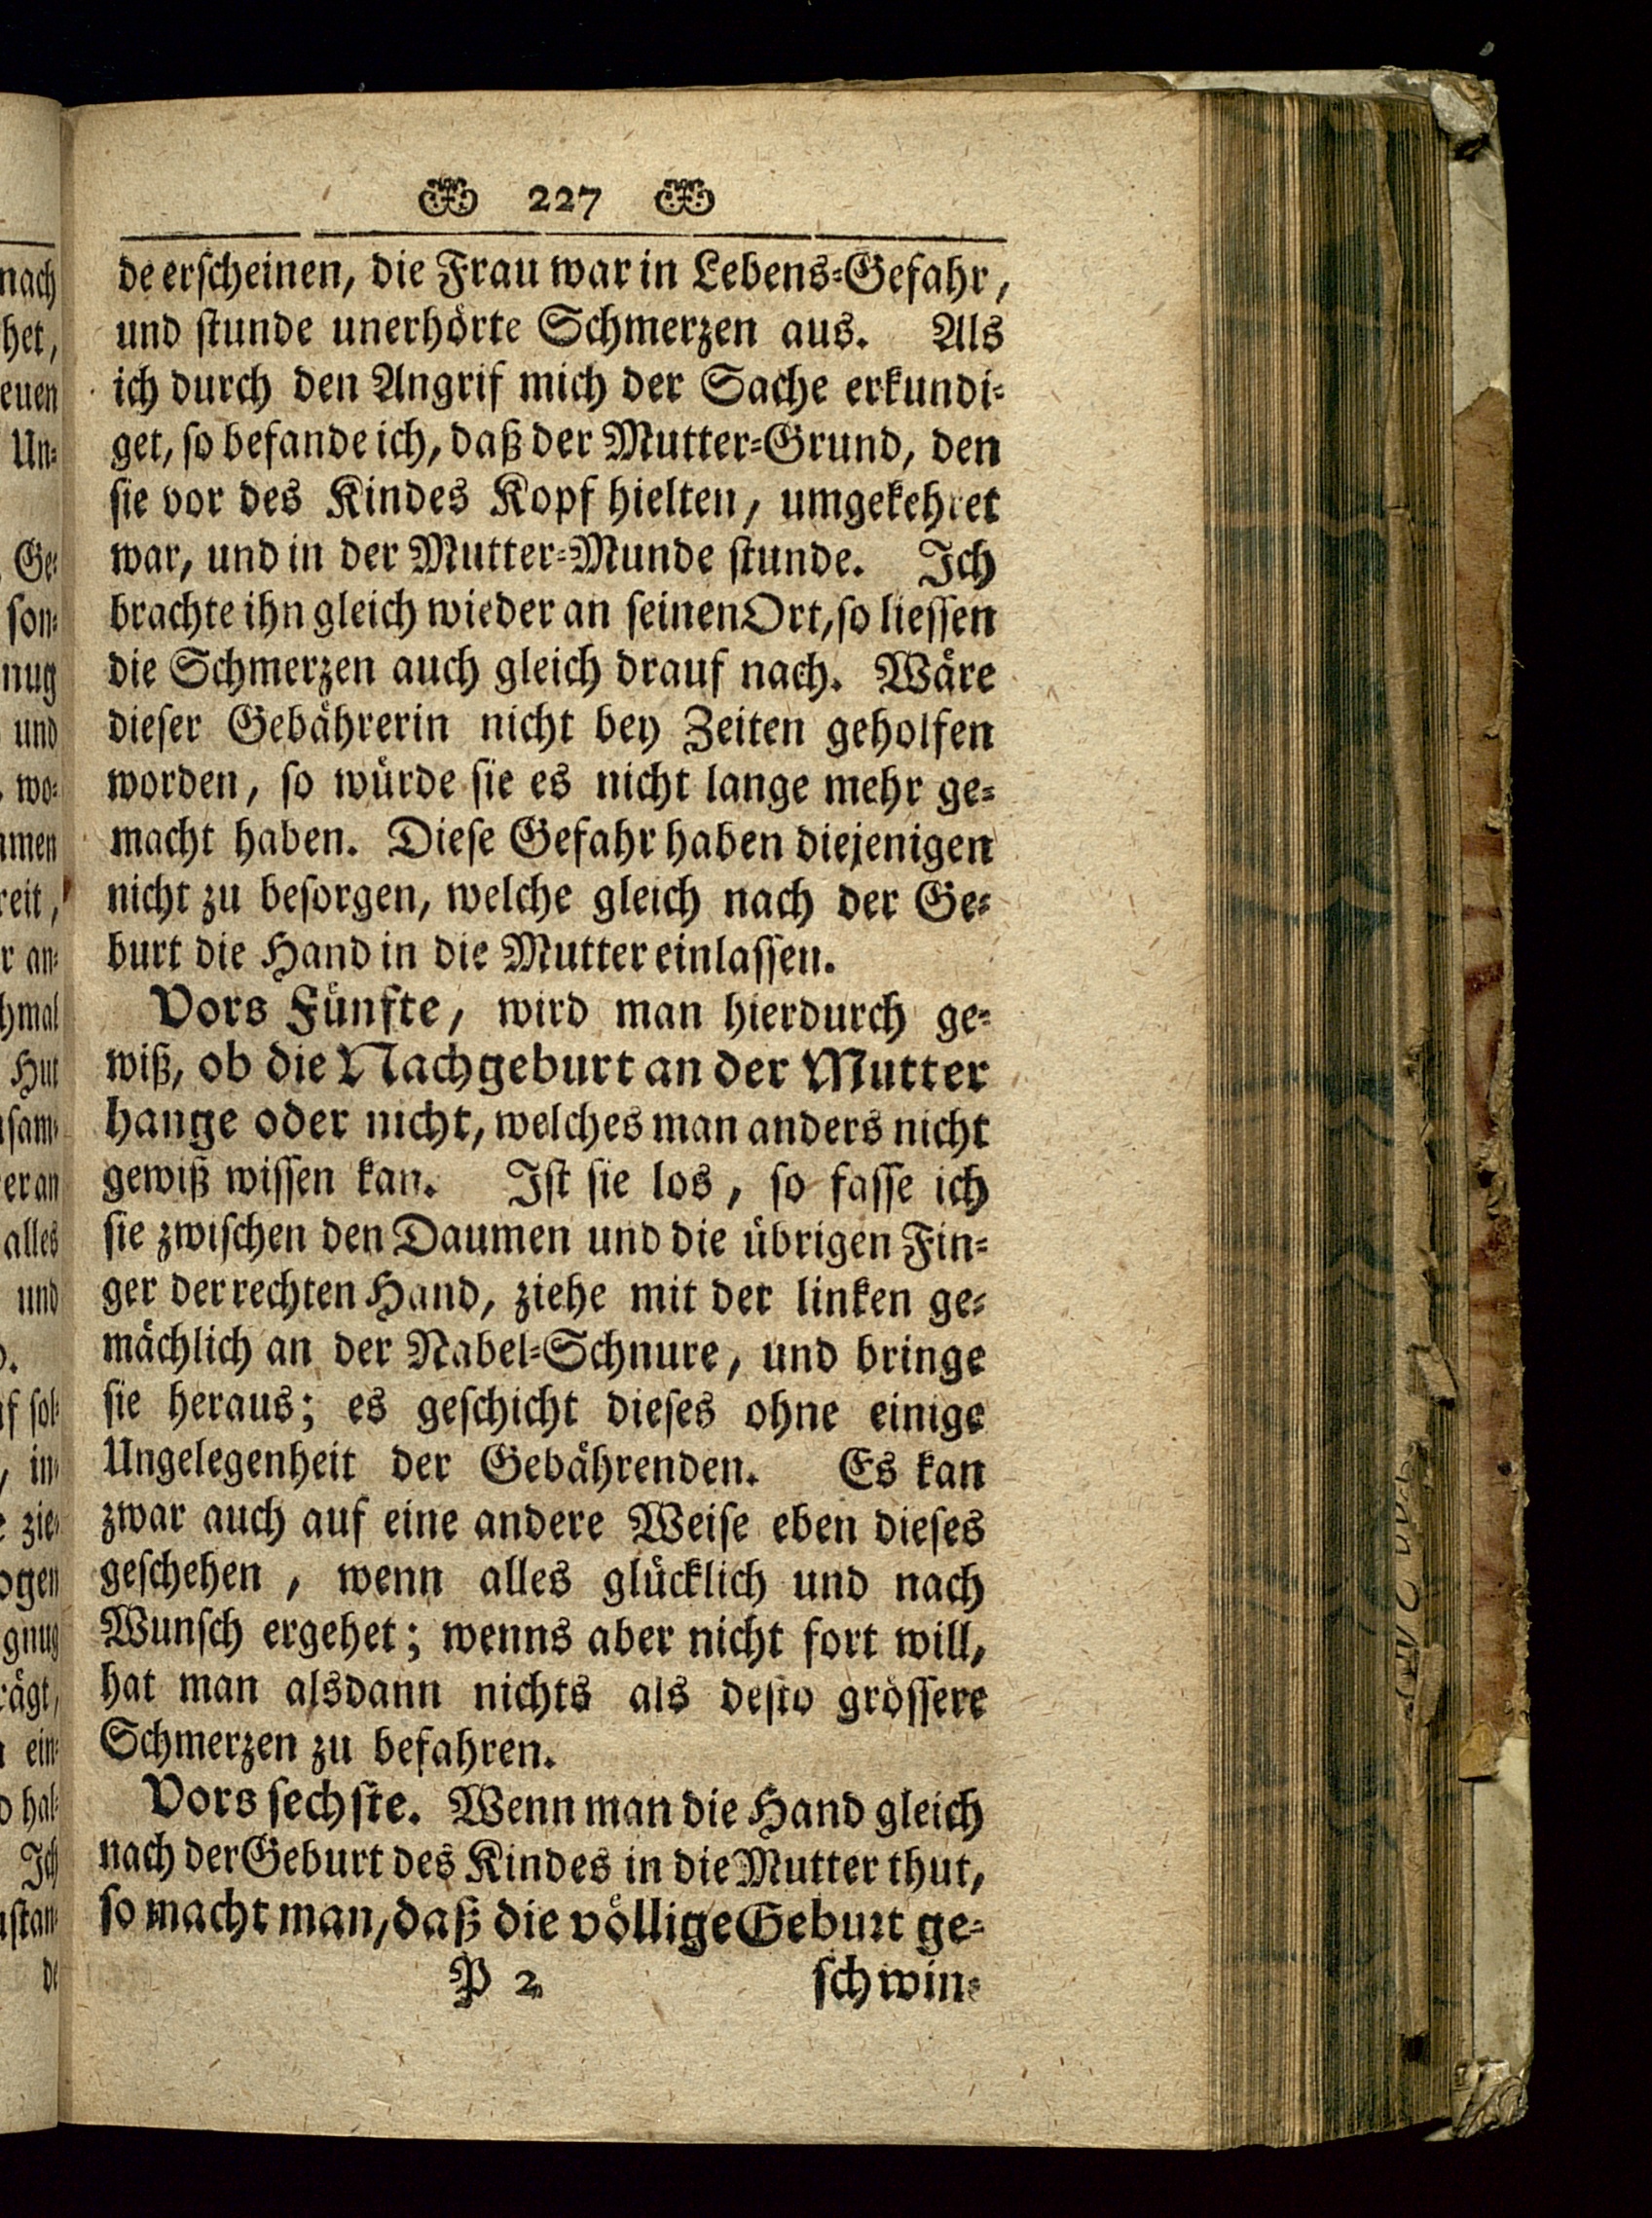 227
de erscheinen, die Frau war in Lebens-Gefahr,
und stunde unerhörte Schmerzen aus. Als
ich durch den Angrif mich der Sache erkundi-
get, so befande ich, daß der Mutter-Grund, den
sie vor des Kindes Kopf hielten, umgekehret
war, und in der Mutter-Munde stunde. Ich
brachte ihn gleich wieder an seinen Ort, so liessen
die Schmerzen auch gleich drauf nach. Wäre
dieser Gebährerin nicht bey Zeiten geholfen
worden, so würde sie es nicht lange mehr ge-
macht haben. Diese Gefahr haben diejenigen
nicht zu besorgen, welche gleich nach der Ge-
burt die Hand in die Mutter einlassen.
Vors Fünfte, wird man hierdurch ge-
wiß, ob die Nachgeburt an der Mutter
hange oder nicht, welches man anders nicht
gewiß wissen kan. Ist sie los, so fasse ich
sie zwischen den Daumen und die übrigen Fin-
ger der rechten Hand, ziehe mit der linken ge-
mächlich an der Nabel-Schnure, und bringe
sie heraus; es geschicht dieses ohne einige
Ungelegenheit der Gebährenden. Es kan
zwar auch auf eine andere Weise eben dieses
geschehen, wenn alles glücklich und nach
Wunsch ergehet; wenns aber nicht fort will,
hat man alsdann nichts als desto grössere
Schmerzen zu befahren.
Vors sechste. Wenn man die Hand gleich
nach der Geburt des Kindes in die Mutter thut,
so macht man, daß die völlige Geburt ge-
P 2 schwin-